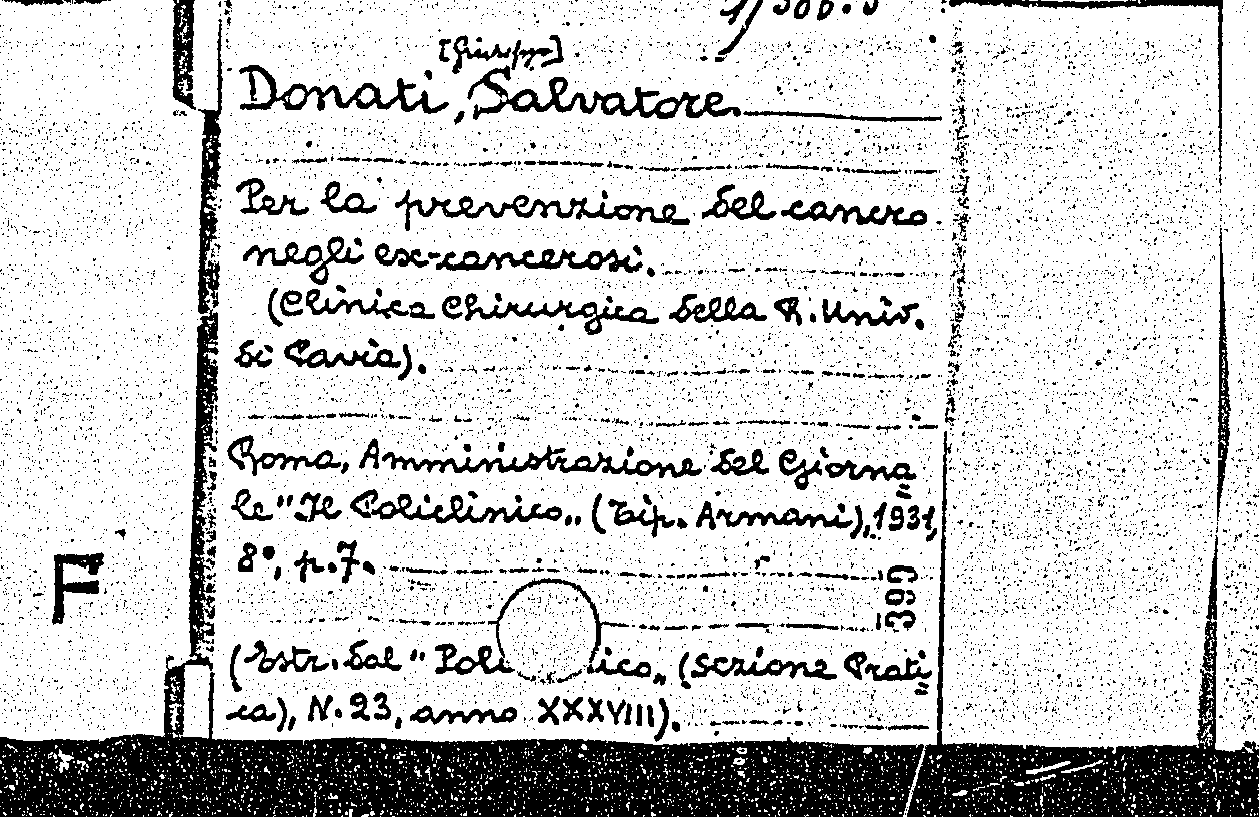 [Giuseppe]
Donati, Salvatore.
Per la prevenzione del cancro
negli ex-cancerosi.
(Clinica Chirurgica della R. Univ.
di Pavia).
Roma, Amministrazione del Giorna=
le "Il Policlinico„ (Tip. Armani), 1931,
8°, p. 7.
399
F
(Estr. dal "Poli ico„ (Sezione Prati=
ca), N. 23, anno XXXVIII).